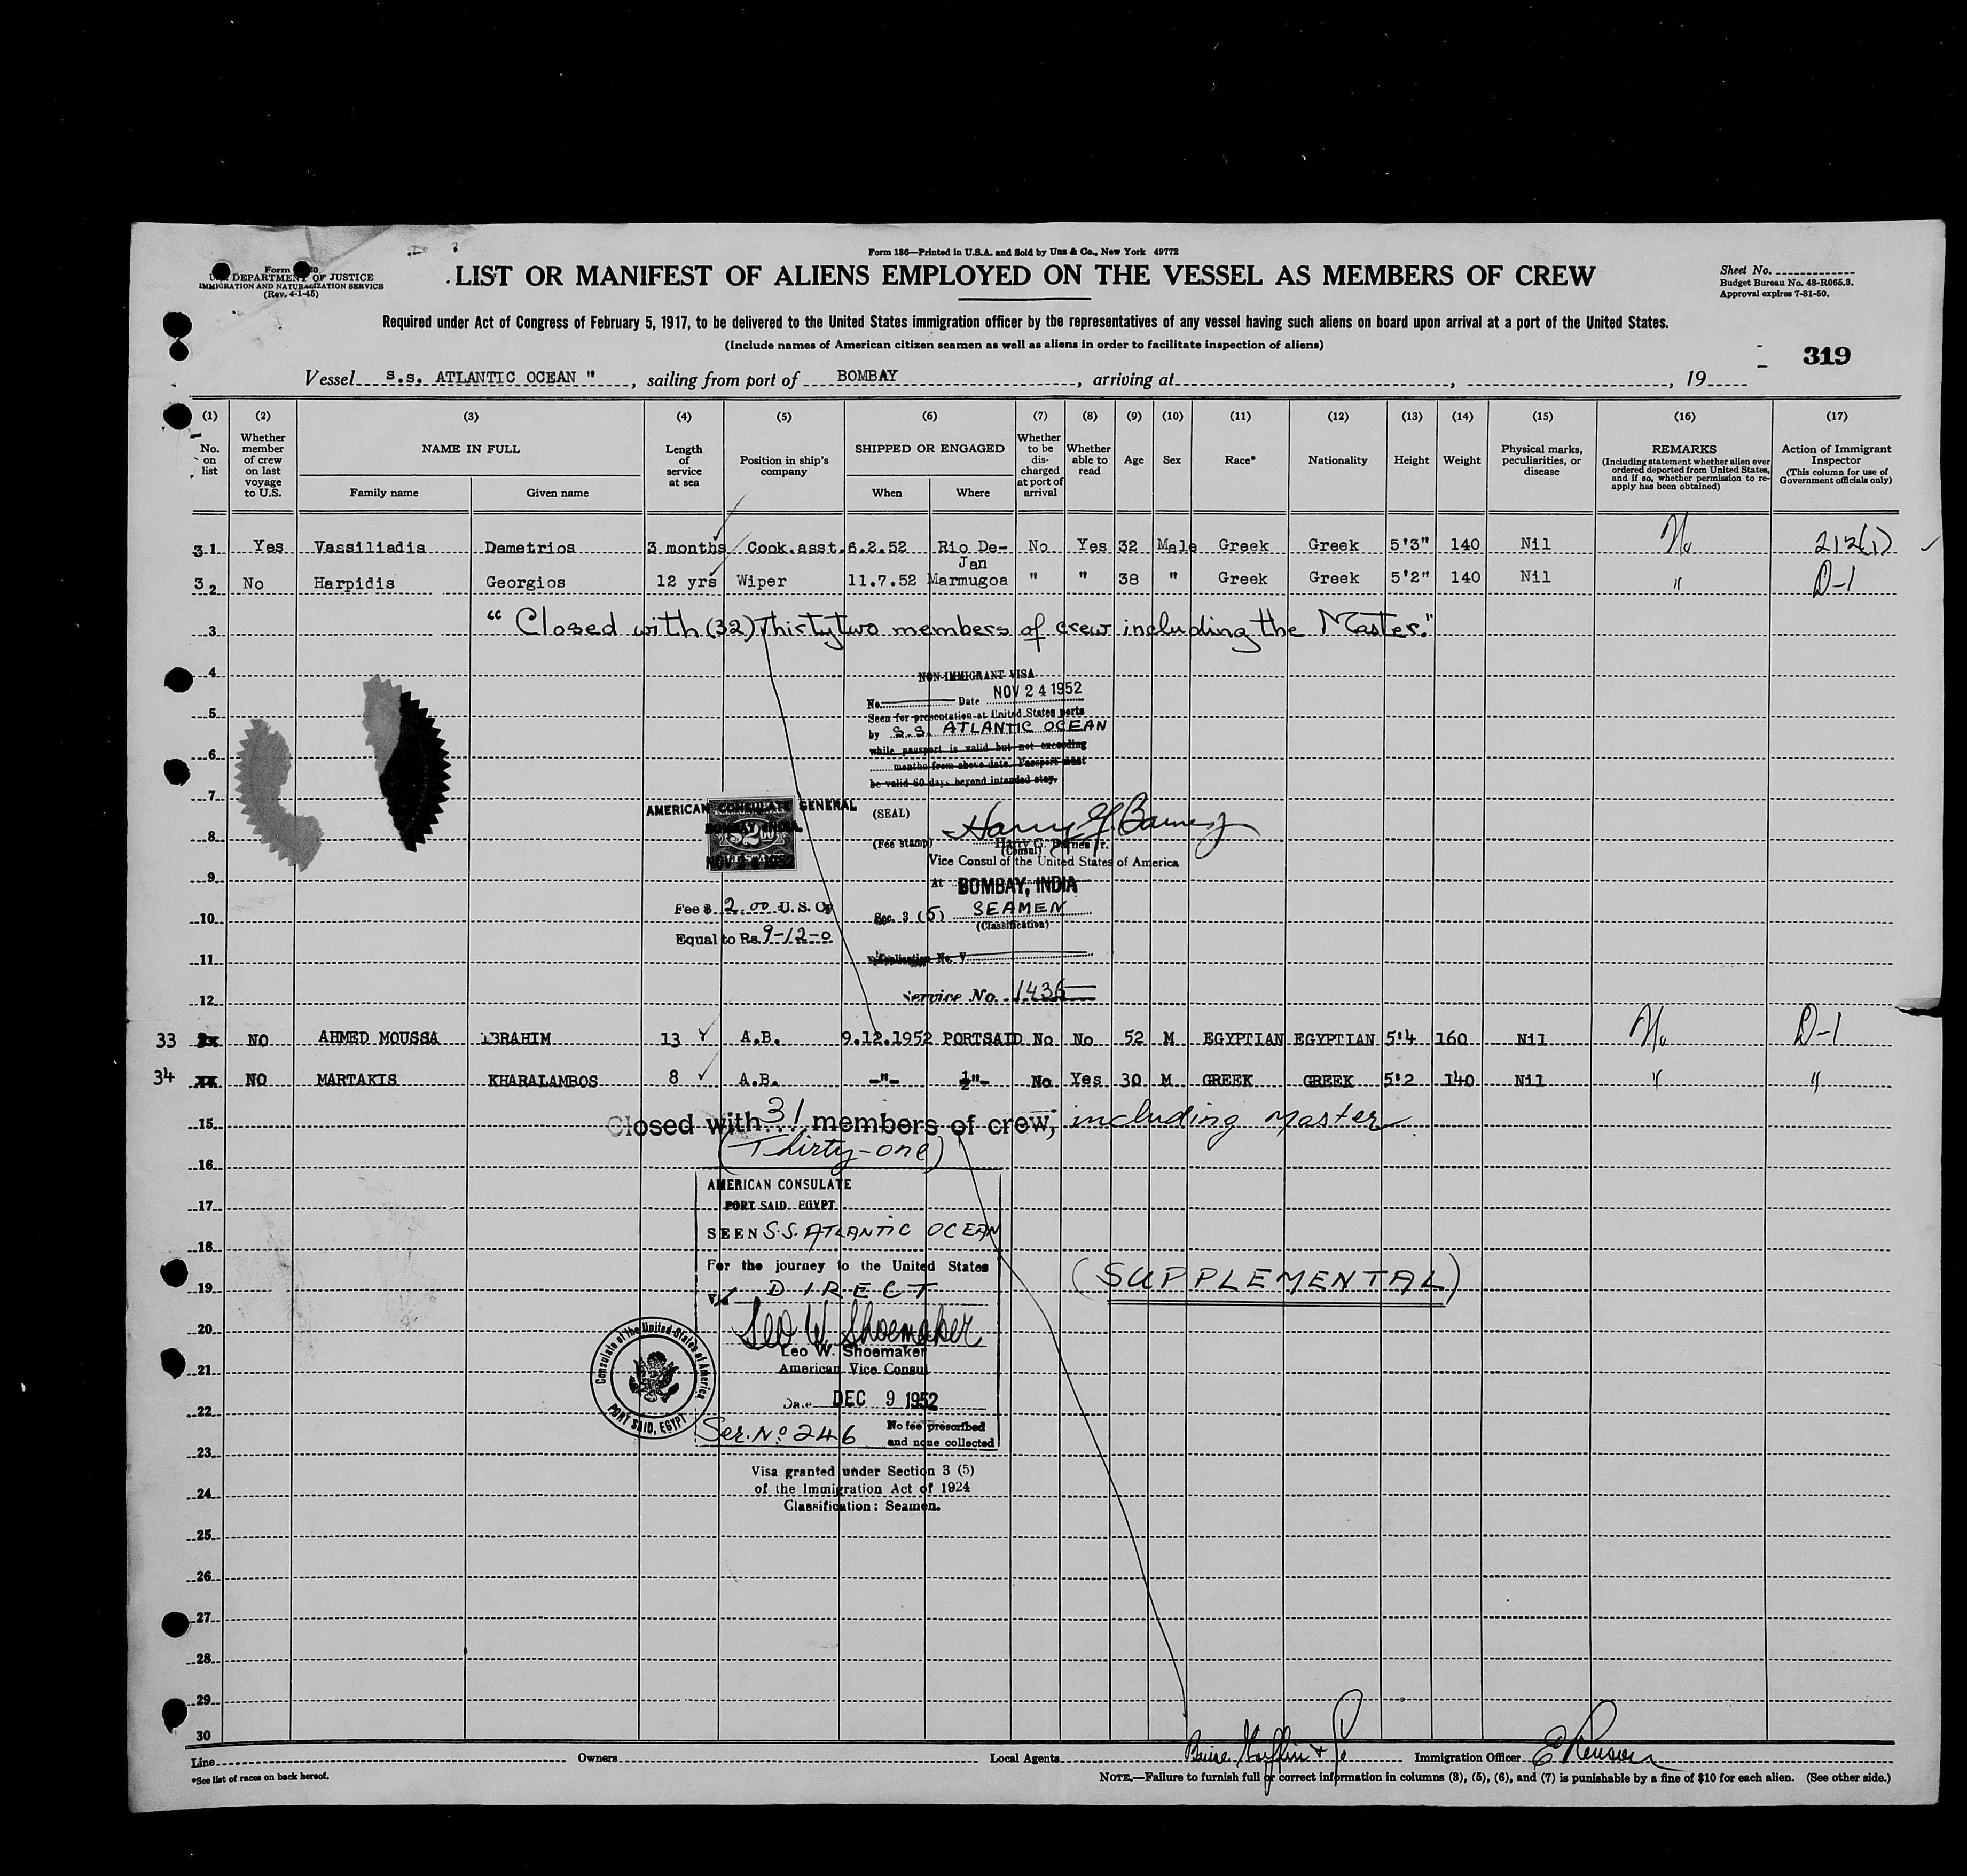 Form 186—Printed in U.S.A. and Sold by Unz & Co., New York 49772
Form
DEPARTMENT OF JUSTICE
IMMIGRATION AND NATURALIZATION SERVICE
(Rev. 4-1-45)
LIST OR MANIFEST OF ALIENS EMPLOYED ON THE VESSEL AS MEMBERS OF CREW
Sheet No.
Budget Bureau No. 43-R065.3.
Approval expires 7-31-50.
Required under Act of Congress of February 5, 1917, to be delivered to the United States immigration officer by the representatives of any vessel having such aliens on board upon arrival at a port of the United States.
(Include names of American citizen seamen as well as aliens in order to facilitate inspection of aliens)
319
Vessel S.s. ATLANTIC OCEAN " , sailing from port of BOMBAY , arriving at , , 19
(1) (2) (3) (4) (5) (6) (7) (8) (9) (10) (11) (12) (13) (14) (15) (16) (17)
No. on list
Whether member of crew on last voyage to U.S.
NAME IN FULL
Family name Given name
Length of service at sea
Position in ship's company
SHIPPED OR ENGAGED
When Where
Whether to be discharged at port of arrival
Whether able to read
Age Sex Race* Nationality Height Weight
Physical marks, peculiarities, or disease
REMARKS
(Including statement whether alien ever ordered deported from United States, and if so, whether permission to re-apply has been obtained)
Action of Immigrant Inspector
(This column for use of Government officials only)
31 Yes Vassiliadis Demetrios 3 months Cook.asst. 6.2.52 Rio De-Jan No Yes 32 Male Greek Greek 5'3" 140 Nil No 212(1)
32 No Harpidis Georgios 12 yrs Wiper 11.7.52 Marmugoa " " 38 " Greek Greek 5'2" 140 Nil " D-1
3 "Closed with (32) Thirtytwo members of crew including the Master."
4
NON-IMMIGRANT VISA
No. Date NOV 24 1952
5
Seen for presentation at United States ports
by S.S. ATLANTIC OCEAN
while passport is valid but not exceeding
6
months from above date. Passport must
be valid 60 days beyond intended stay.
7
AMERICAN CONSULATE GENERAL
BOMBAY INDIA
(SEAL)
8
(Fee stamp) Harry G. Barnes Jr.
(Consul)
Vice Consul of the United States of America
9
At BOMBAY, INDIA
Fee $ 2.00 U.S. Cy
10
Sec. 3 (5) SEAMEN
(Classification)
Equal to Rs. 9-12-0
11
Application No. V
12
Service No. 1436
33 NO AHMED MOUSSA IBRAHIM 13 A.B. 9.12.1952 PORTSAID No No 52 M EGYPTIAN EGYPTIAN 5'4 160 Nil No D-1
34 NO MARTAKIS KHARALAMBOS 8 A.B. -"- -"- No Yes 30 M GREEK GREEK 5'2 140 Nil " "
15 Closed with 31 members of crew, including Master
(Thirty-one)
16
AMERICAN CONSULATE
17
PORT SAID. EGYPT
SEEN S.S. ATLANTIC OCEAN
18
For the journey to the United States
19
DIRECT
(SUPPLEMENTAL)
20
Leo W. Shoemaker
Leo W. Shoemaker
21
American Vice Consul
Consulate of the United States of America
PORT SAID, EGYPT
Date DEC 9 1952
22
Ser. No 246
No fee prescribed
and none collected
23
Visa granted under Section 3 (5)
24
of the Immigration Act of 1924
Classification: Seamen.
25
26
27
28
29
30
Line Owners Local Agents Immigration Officer
*See list of races on back hereof.
NOTE.—Failure to furnish full or correct information in columns (3), (5), (6), and (7) is punishable by a fine of $10 for each alien. (See other side.)